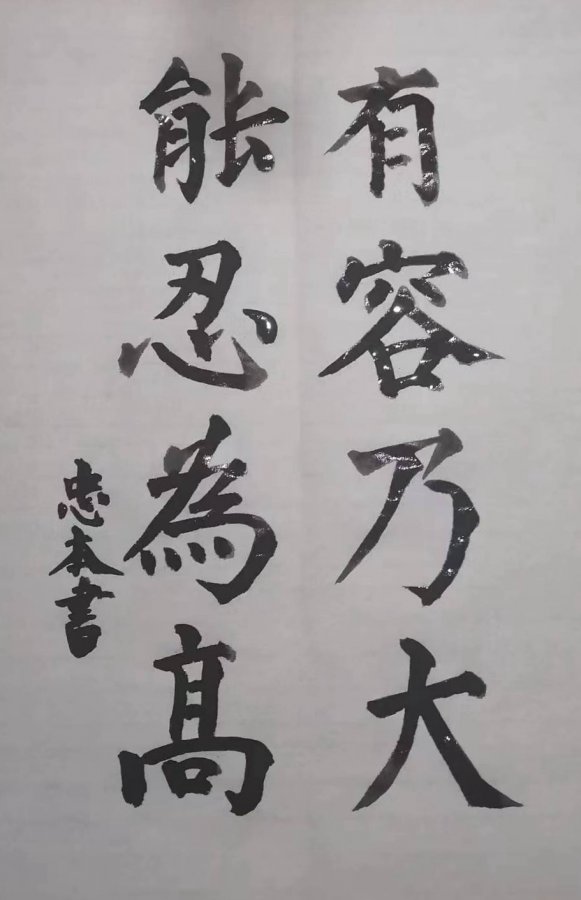 有容乃大
能忍為髙
忠本書